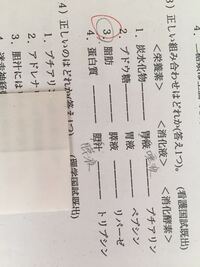 3) 正しい組み合わせはどれか(答え1つ)。 (看護国試既出)
<栄養素> <消化液> <消化酵素>
1. 炭水化物 ―――― 胃液 ―――― プチアリン
2. ブドウ糖 ―――― 胃液 ―――― ペプシン
3. 脂肪 ―――― 膵液 ―――― リパーゼ
4. 蛋白質 ―――― 胆汁 ―――― トリプシン
4) 正しいのはどれか(答え1つ)。 国試既出)
1. プチアリ
2. アドレナ
3 胆汁には